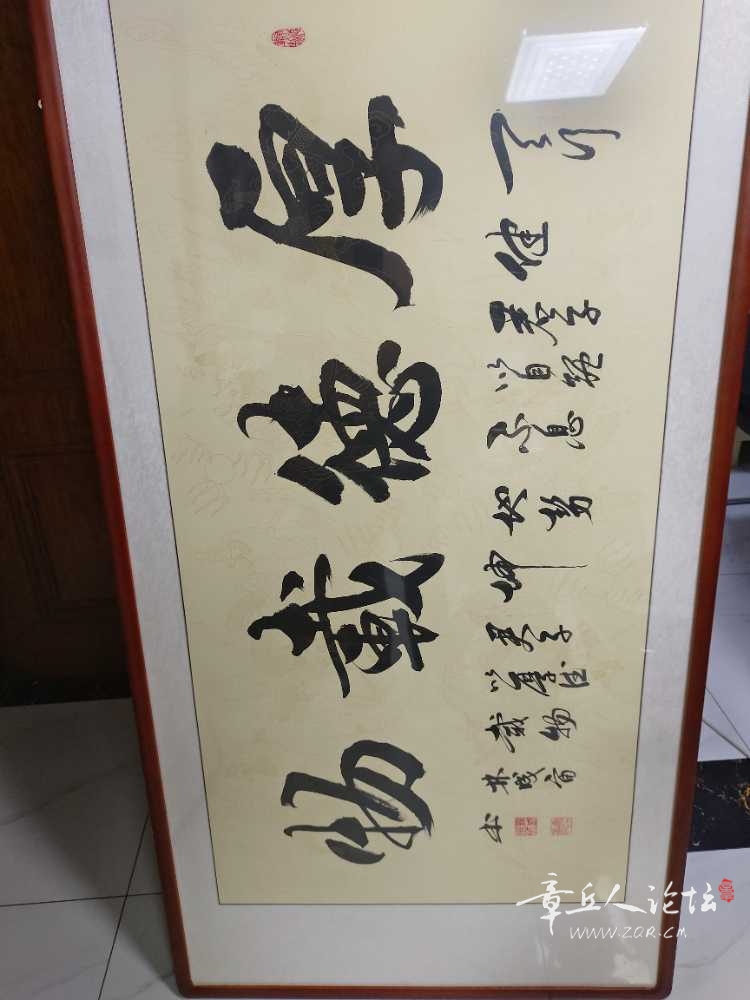 厚德載物
天行
健
君子
以自強
不息
地勢
坤
君子
以厚德
載物
章丘人论坛
WWW.ZQR.CM